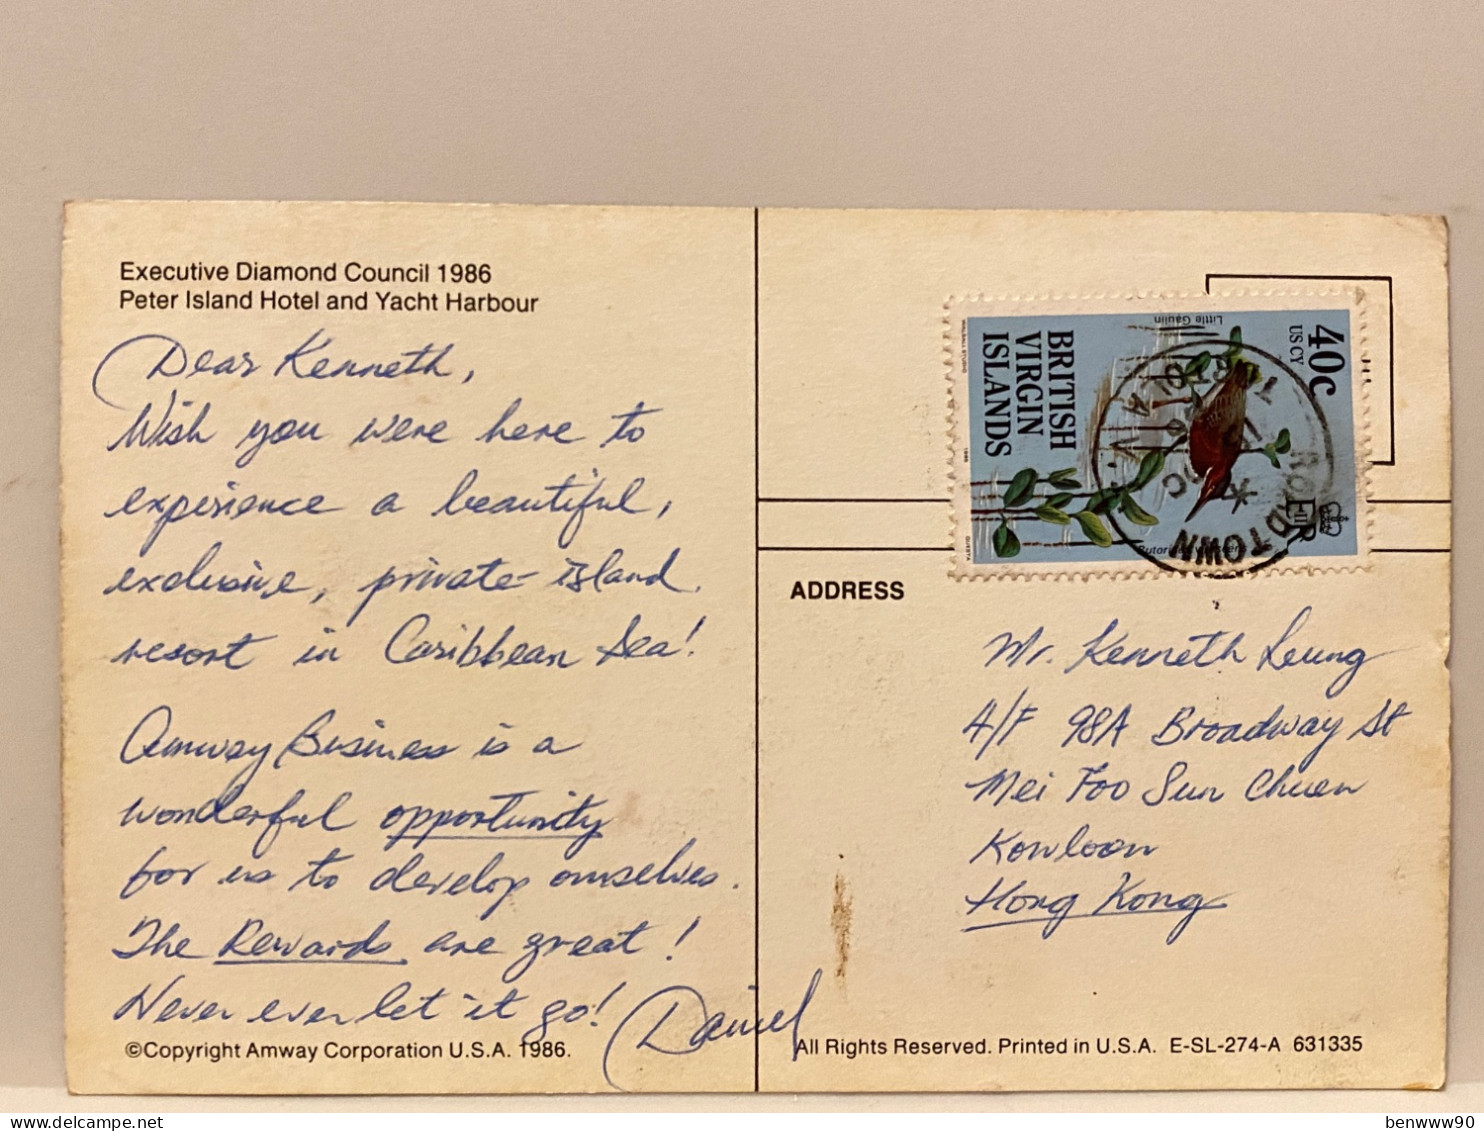 Executive Diamond Council 1986
Peter Island Hotel and Yacht Harbour
Dear Kenneth,
Wish you were here to
experience a beautiful,
exclusive, private island
resort in Caribbean Sea!
Amway Business is a
wonderful opportunity
for us to develop ourselves.
The Rewards are great!
Never ever let it go!
Daniel
©Copyright Amway Corporation U.S.A. 1986.
Little Gaulin
40c
US CY
BRITISH
VIRGIN
ISLANDS
EIIR
ROADTOWN
TORTOLA
ADDRESS
Mr. Kenneth Leung
4/F 98A Broadway St
Mei Foo Sun Chuen
Kowloon
Hong Kong
All Rights Reserved. Printed in U.S.A. E-SL-274-A 631335
benwww90